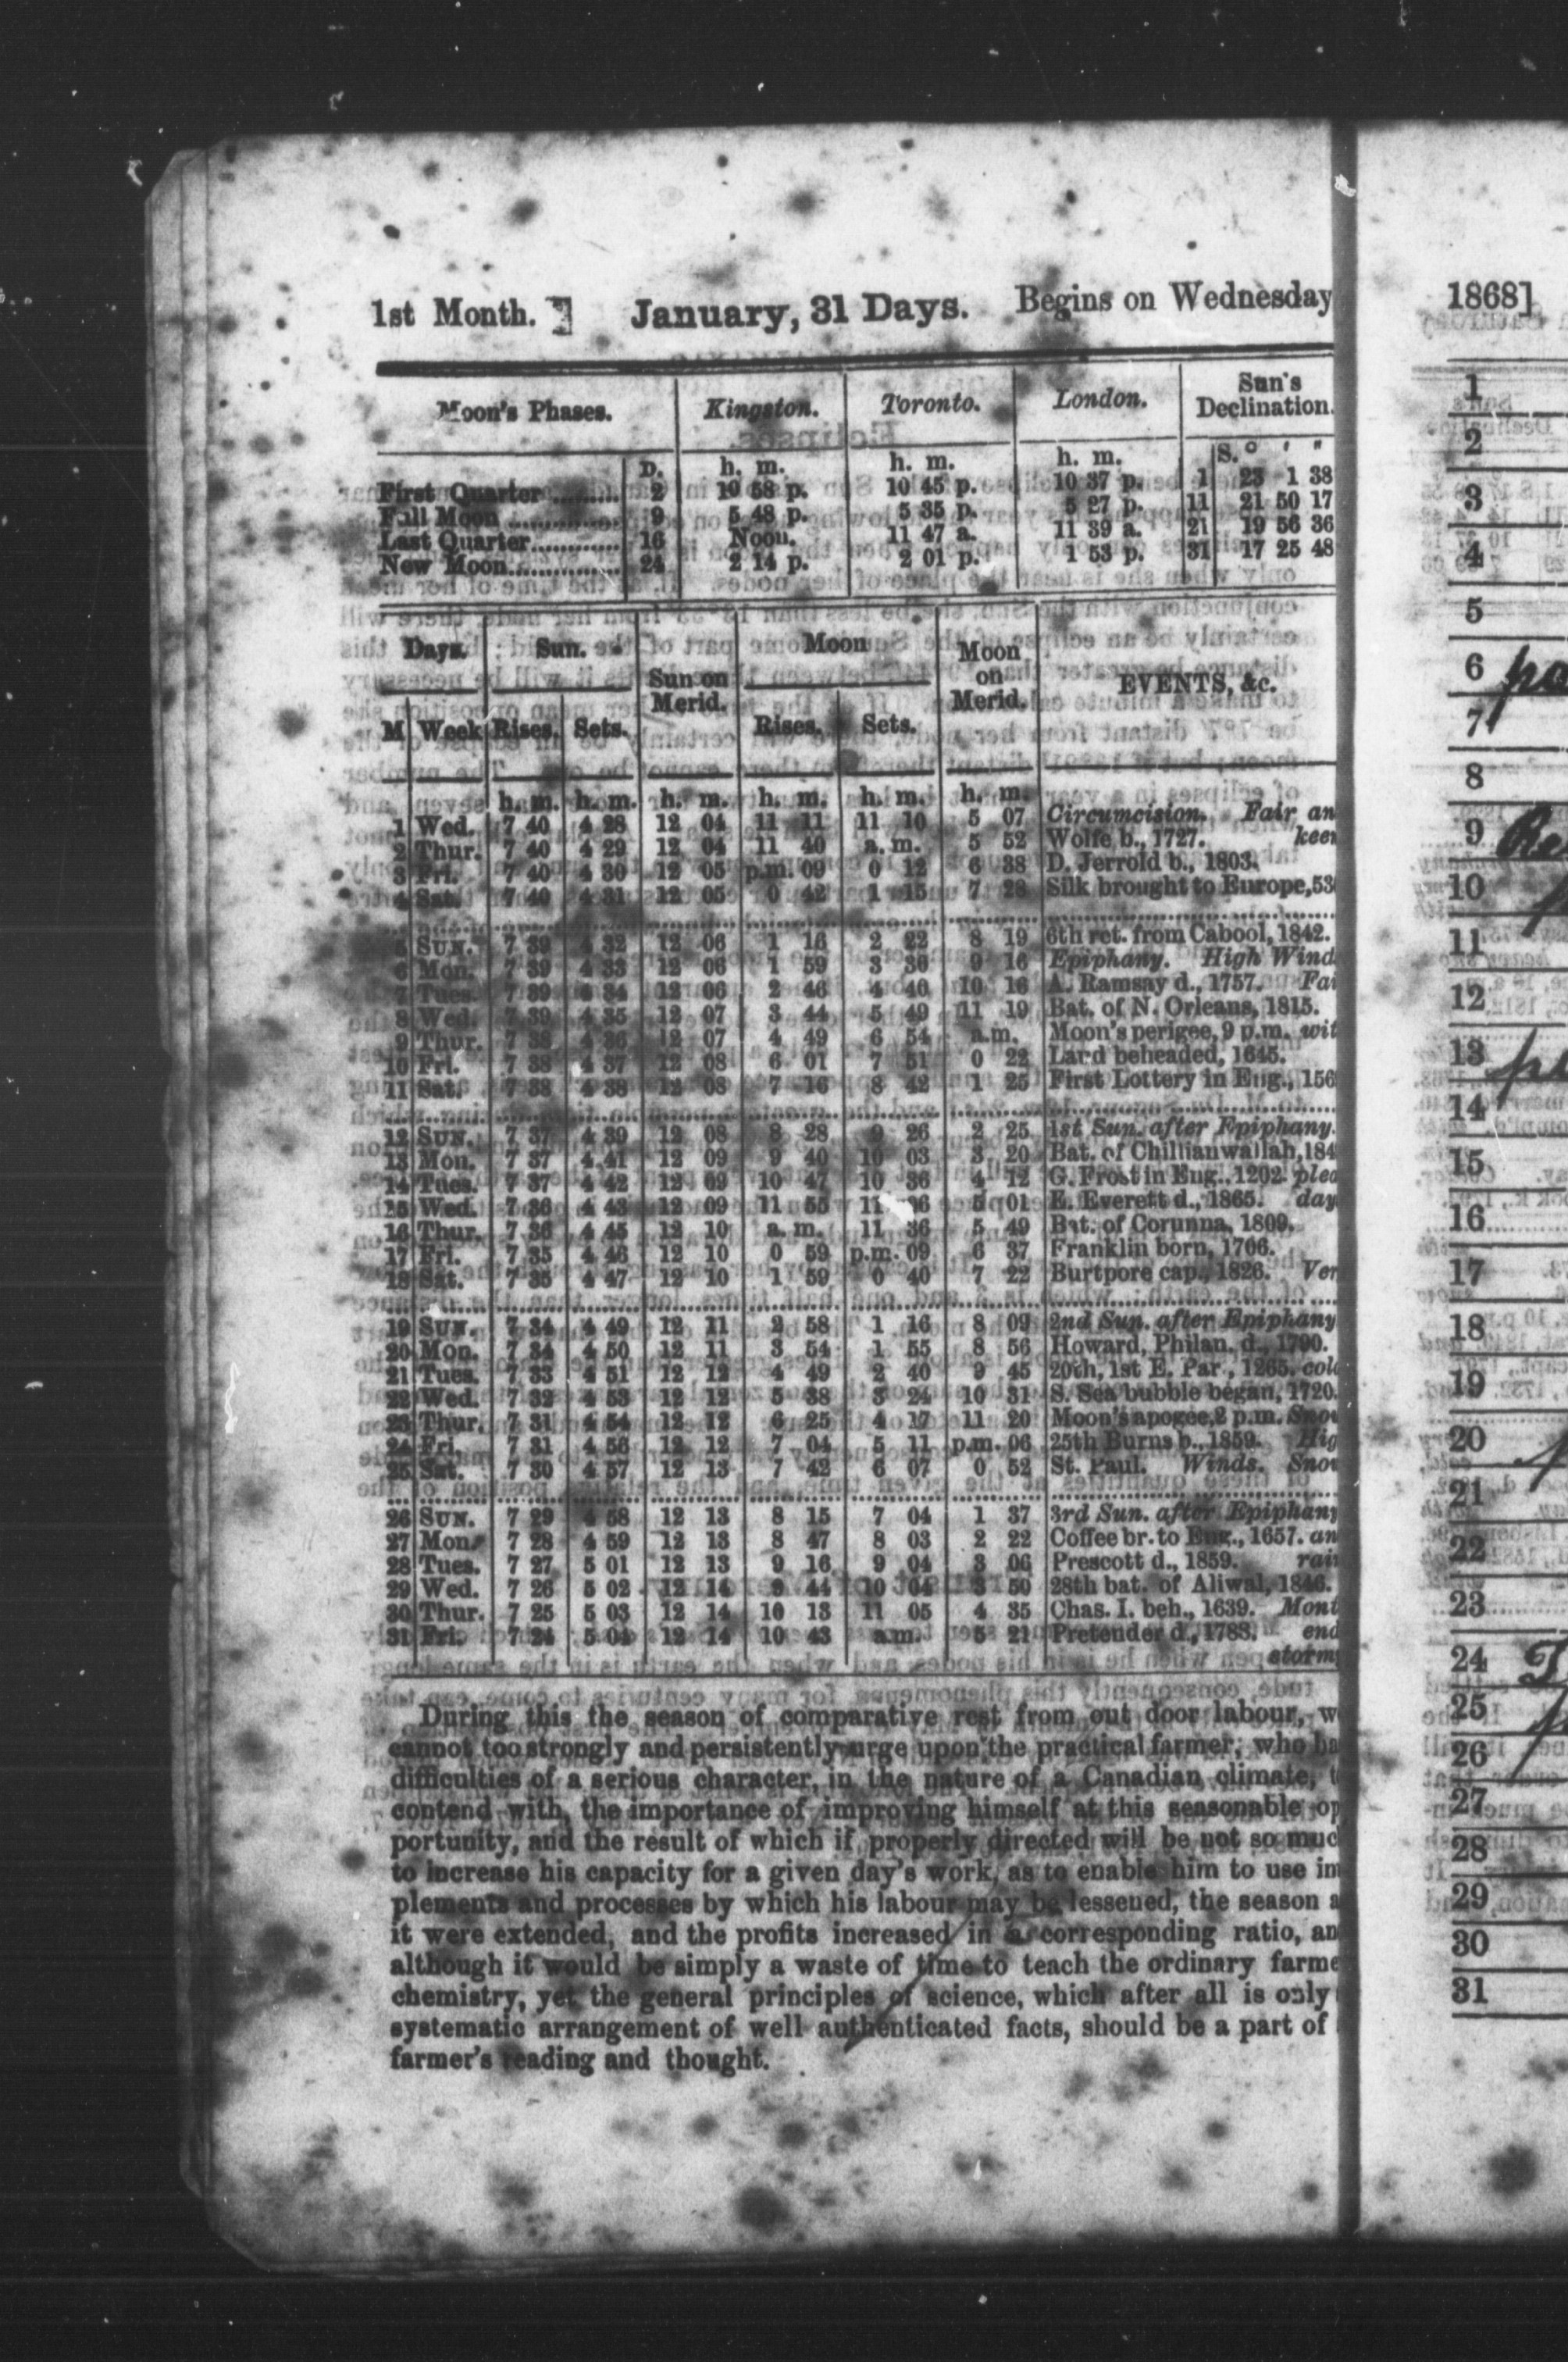 1st Month.] January, 31 Days. Begins on Wednesday
Moon's Phases. Kingston. Toronto. London. Sun's Declination.
D. h. m. h. m. h. m. S. ° ' "
First Quarter ......... 2 10 58 p. 10 45 p. 10 37 p. 1 23 1 38
Full Moon ............ 9 5 48 p. 5 35 p. 5 27 p. 11 21 50 17
Last Quarter............ 16 Noon. 11 47 a. 11 39 a. 21 19 56 36
New Moon............... 24 2 14 p. 2 01 p. 1 53 p. 31 17 25 48
Days. Sun. Sun on Merid. Moon Moon on Merid. EVENTS, &c.
M Week Rises. Sets. Rises. Sets.
h. m. h. m. h. m. h. m. h. m. h. m.
1 Wed. 7 40 4 28 12 04 11 11 11 10 5 07 Circumcision. Fair an
2 Thur. 7 40 4 29 12 04 11 40 a. m. 5 52 Wolfe b., 1727. keen
3 Fri. 7 40 4 30 12 05 p.m. 09 0 12 6 38 D. Jerrold b., 1803.
4 Sat. 7 40 4 31 12 05 0 42 1 15 7 28 Silk brought to Europe, 53
5 SUN. 7 39 4 32 12 06 1 16 2 22 8 19 6th ret. from Cabool, 1842.
6 Mon. 7 39 4 33 12 06 1 59 3 30 9 16 Epiphany. High Wind
7 Tues. 7 39 4 34 12 06 2 46 4 40 10 16 A. Ramsay d., 1757. Fai
8 Wed. 7 39 4 35 12 07 3 44 5 49 11 19 Bat. of N. Orleans, 1815.
9 Thur. 7 38 4 36 12 07 4 49 6 54 a.m. Moon's perigee, 9 p.m. wit
10 Fri. 7 38 4 37 12 08 6 01 7 51 0 22 Laud beheaded, 1645.
11 Sat. 7 38 4 38 12 08 7 16 8 42 1 25 First Lottery in Eng., 156
12 SUN. 7 37 4 39 12 08 8 28 9 26 2 25 1st Sun. after Epiphany.
13 Mon. 7 37 4 41 12 09 9 40 10 03 3 20 Bat. of Chillianwallah, 184
14 Tues. 7 37 4 42 12 09 10 47 10 36 4 12 G. Frost in Eng., 1202. plea
15 Wed. 7 36 4 43 12 09 11 55 11 06 5 01 E. Everett d., 1865. day
16 Thur. 7 36 4 45 12 10 a. m. 11 36 5 49 Bat. of Corunna, 1809.
17 Fri. 7 35 4 46 12 10 0 59 p.m. 09 6 37 Franklin born, 1706.
18 Sat. 7 35 4 47 12 10 1 59 0 40 7 22 Burtpore cap., 1826. Ver
19 SUN. 7 34 4 49 12 11 2 58 1 16 8 09 2nd Sun. after Epiphany
20 Mon. 7 34 4 50 12 11 3 54 1 55 8 56 Howard, Philan. d., 1790.
21 Tues. 7 33 4 51 12 12 4 49 2 40 9 45 20th, 1st E. Par., 1265. cold
22 Wed. 7 32 4 53 12 12 5 38 3 24 10 31 S. Sea bubble began, 1720.
23 Thur. 7 31 4 54 12 12 6 25 4 17 11 20 Moon's apogee, 2 p.m. Snow
24 Fri. 7 31 4 56 12 12 7 04 5 11 p.m. 06 25th Burns b., 1859. Hig
25 Sat. 7 30 4 57 12 13 7 42 6 07 0 52 St. Paul. Winds. Snow
26 SUN. 7 29 4 58 12 13 8 15 7 04 1 37 3rd Sun. after Epiphany
27 Mon. 7 28 4 59 12 13 8 47 8 03 2 22 Coffee br. to Eng., 1657. an
28 Tues. 7 27 5 01 12 13 9 16 9 04 3 06 Prescott d., 1859. rain
29 Wed. 7 26 5 02 12 14 9 44 10 04 3 50 28th bat. of Aliwal, 1846.
30 Thur. 7 25 5 03 12 14 10 13 11 05 4 35 Chas. I. beh., 1639. Mont
31 Fri. 7 24 5 04 12 14 10 43 a.m. 5 21 Pretender d., 1788. end
storm
During this the season of comparative rest from out door labour, w
cannot too strongly and persistently urge upon the practical farmer, who ha
difficulties of a serious character, in the nature of a Canadian climate, t
contend with, the importance of improving himself at this seasonable op
portunity, and the result of which if properly directed will be not so muc
to increase his capacity for a given day's work, as to enable him to use im
plements and processes by which his labour may be lessened, the season a
it were extended, and the profits increased in a corresponding ratio, an
although it would be simply a waste of time to teach the ordinary farme
chemistry, yet the general principles of science, which after all is only
systematic arrangement of well authenticated facts, should be a part of
farmer's reading and thought.
1868]
1
2
3
4
5
6
7
8
9
10
11
12
13
14
15
16
17
18
19
20
21
22
23
24
25
26
27
28
29
30
31